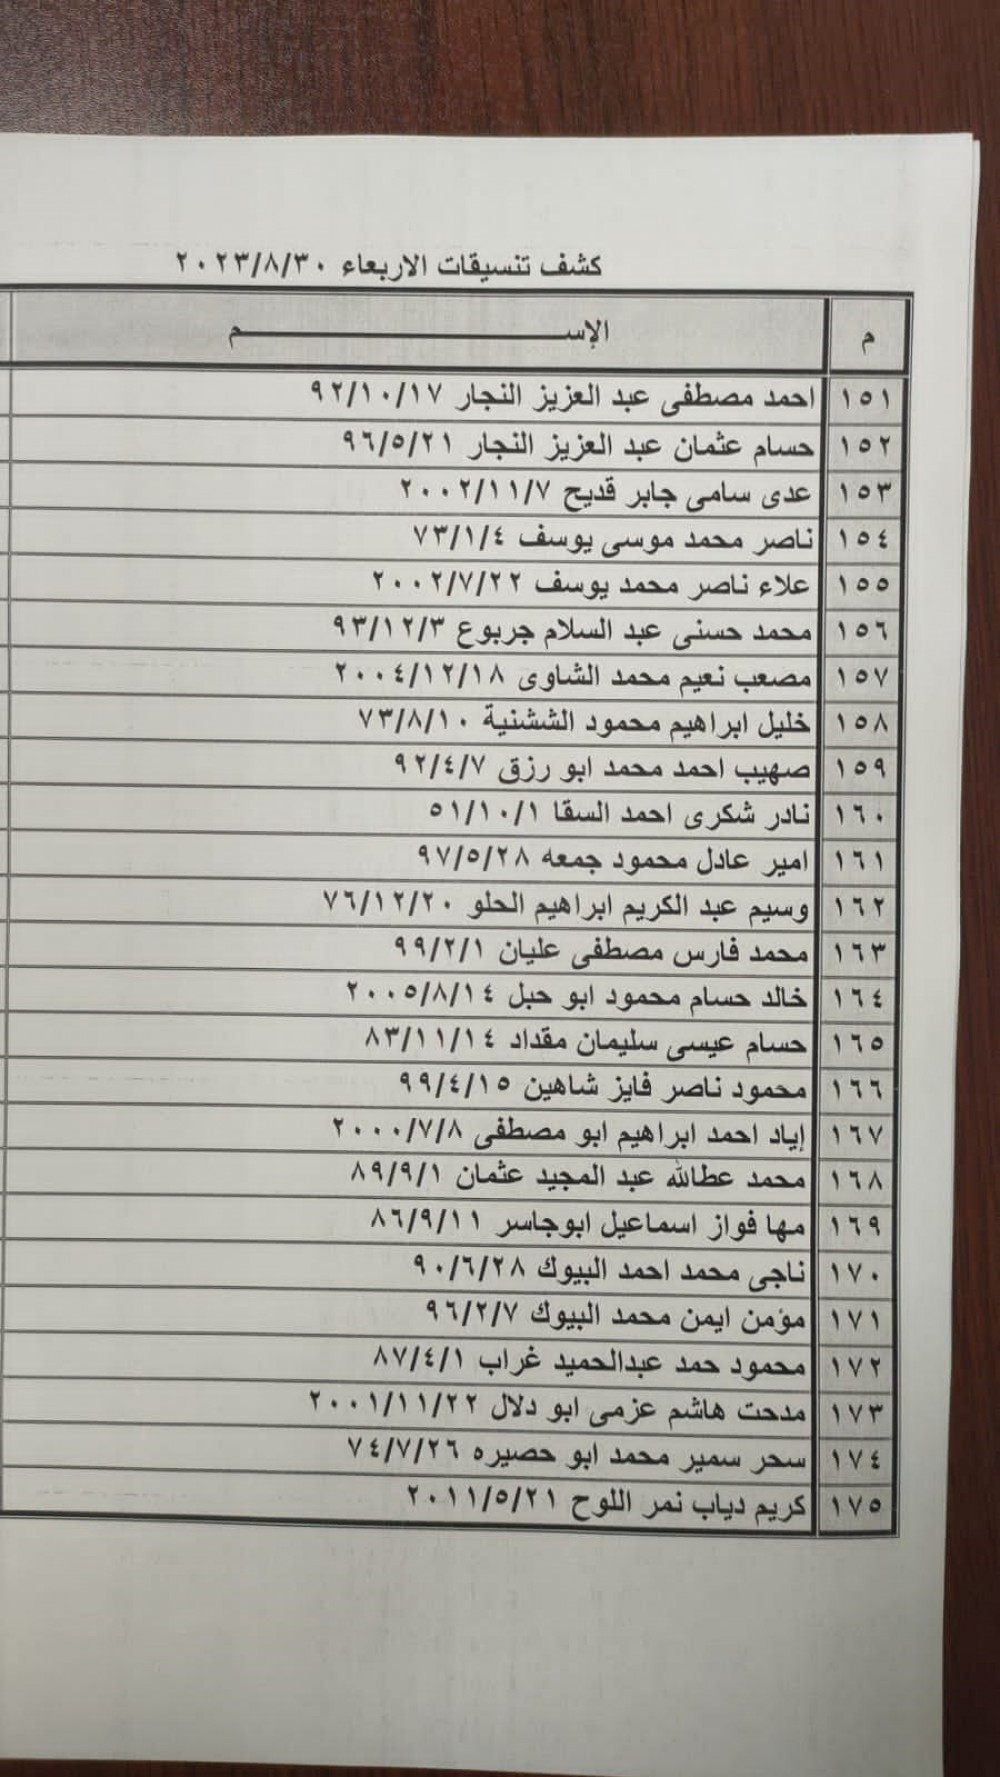 كشف تنسيقات الاربعاء ٢٠٢٣/٨/٣٠
م الإســـــم
١٥١ احمد مصطفى عبد العزيز النجار ٩٢/١٠/١٧
١٥٢ حسام عثمان عبد العزيز النجار ٩٦/٥/٢١
١٥٣ عدى سامى جابر قديح ٢٠٠٢/١١/٧
١٥٤ ناصر محمد موسى يوسف ٧٣/١/٤
١٥٥ علاء ناصر محمد يوسف ٢٠٠٢/٧/٢٢
١٥٦ محمد حسنى عبد السلام جربوع ٩٣/١٢/٣
١٥٧ مصعب نعيم محمد الشاوى ٢٠٠٤/١٢/١٨
١٥٨ خليل ابراهيم محمود الششنية ٧٣/٨/١٠
١٥٩ صهيب احمد محمد ابو رزق ٩٢/٤/٧
١٦٠ نادر شكرى احمد السقا ٥١/١٠/١
١٦١ امير عادل محمود جمعه ٩٧/٥/٢٨
١٦٢ وسيم عبد الكريم ابراهيم الحلو ٧٦/١٢/٢٠
١٦٣ محمد فارس مصطفى عليان ٩٩/٢/١
١٦٤ خالد حسام محمود ابو حبل ٢٠٠٥/٨/١٤
١٦٥ حسام عيسى سليمان مقداد ٨٣/١١/١٤
١٦٦ محمود ناصر فايز شاهين ٩٩/٤/١٥
١٦٧ إياد احمد ابراهيم ابو مصطفى ٢٠٠٠/٧/٨
١٦٨ محمد عطالله عبد المجيد عثمان ٨٩/٩/١
١٦٩ مها فواز اسماعيل ابوجاسر ٨٦/٩/١١
١٧٠ ناجى محمد احمد البيوك ٩٠/٦/٢٨
١٧١ مؤمن ايمن محمد البيوك ٩٦/٢/٧
١٧٢ محمود حمد عبدالحميد غراب ٨٧/٤/١
١٧٣ مدحت هاشم عزمى ابو دلال ٢٠٠١/١١/٢٢
١٧٤ سحر سمير محمد ابو حصيره ٧٤/٧/٢٦
١٧٥ كريم دياب نمر اللوح ٢٠١١/٥/٢١